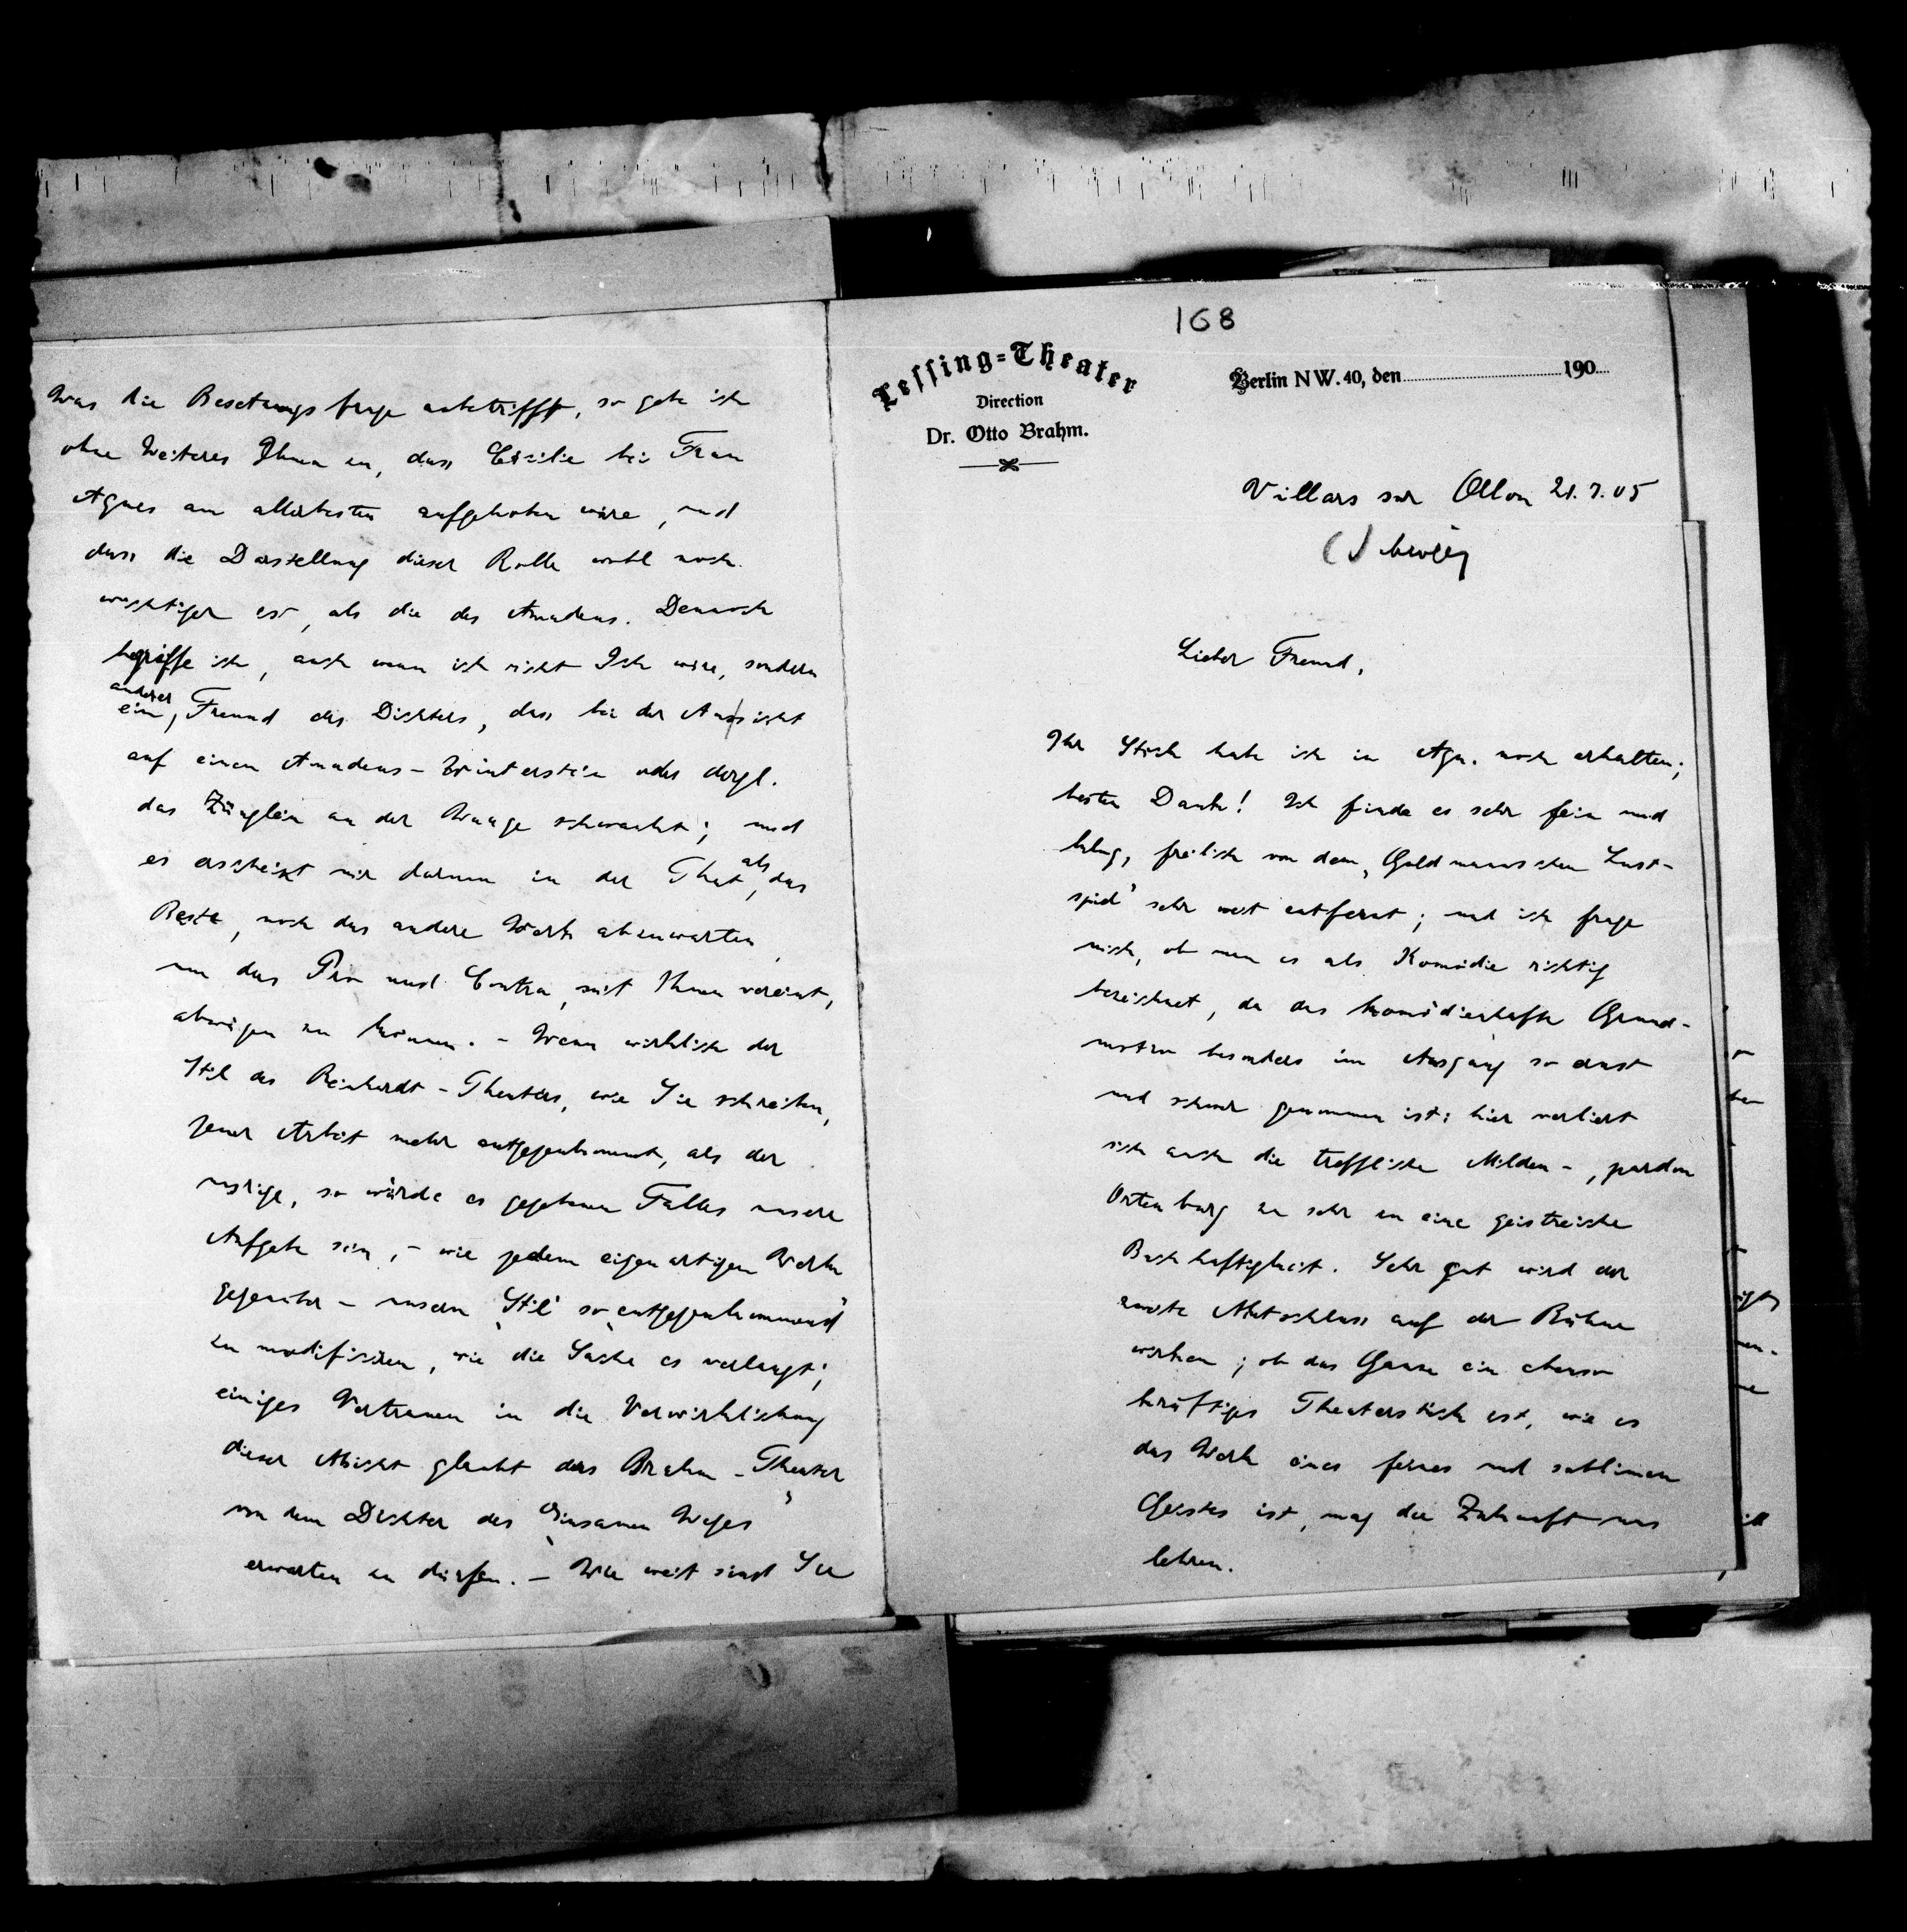 168
Lessing-Theater
Direction
Dr. Otto Brahm.
Berlin NW. 40, den 190
Villars sur Ollon 21.7.05
(Schweiz)
Lieber Freund,
Ihr Stück habe ich in Agn. noch erhalten;
besten Dank! Ich finde es sehr fein und
klug, freilich von dem „Goldmannschen Lust-
spiel“ sehr weit entfernt; und ich frage
mich, ob man es als Komödie richtig
bezeichnet, da das komödienhafte Grund-
motiv besonders im Ausgang so ernst
und schwer genommen ist: hier verliert
sich auch die treffliche Milden-, pardon
Ortenburg zu sehr in eine geistreiche
Buchhaftigkeit. Sehr gut wird der
zweite Aktschluss auf der Bühne
wirken; ob das Ganze ein ebenso
kräftiges Theaterstück ist, wie es
das Werk eines feines und sublimen
Geistes ist, mag die Zukunft uns
lehren.
Was die Besetzungsfrage anbetrifft, so gebe ich
ohne Weiteres Ihnen zu, dass Cäcilie bei Frau
Agnes am allerbesten aufgehoben wäre, und
dass die Darstellung dieser Rolle wohl noch
wichtiger ist, als die des Amadeus. Dennoch
begriffe ich, auch wenn ich nicht Ich wäre, sondern
ein anderer Freund des Dichters, dass bei der Aussicht
auf einen Amadeus-Winterstein oder dergl.
das Zünglein an der Waage schwankt; und
es erscheint mir darum in der That als das
Beste, noch das andere Werk abzuwarten,
um das Pro und Contra, mit Ihnen vereint,
abwägen zu können. – Wenn wirklich der
Stil des Reinhardt-Theaters, wie Sie schreiben,
jener Arbeit mehr entgegenkommt, als der
unsrige, so würde es gegebenen Falles unsere
Aufgabe sein, – wie jedem eigenartigen Werke
gegenüber – unsern „Stil“ so „entgegenkommend“
zu modifisiren, wie die Sache es verlangt;
einiges Vertrauen in die Verwirklichung
dieser Absicht glaubt das Brahm-Theater
von dem Dichter des „Einsamen Weges“
erwarten zu dürfen. – Wie weit sind Sie